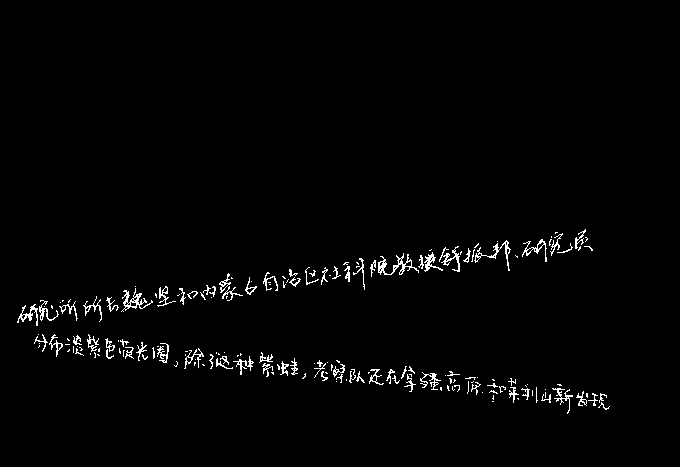 研究所所长魏坚和内蒙古自治区社科院教授舒振邦、研究员
分布淡紫色荧光圈，除了这种紫蛙，考察队还在拿骚高原和莱利山新发现